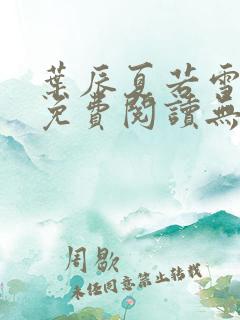 葉辰夏若雪
免費閱讀無
周歇
未经同意禁止转载